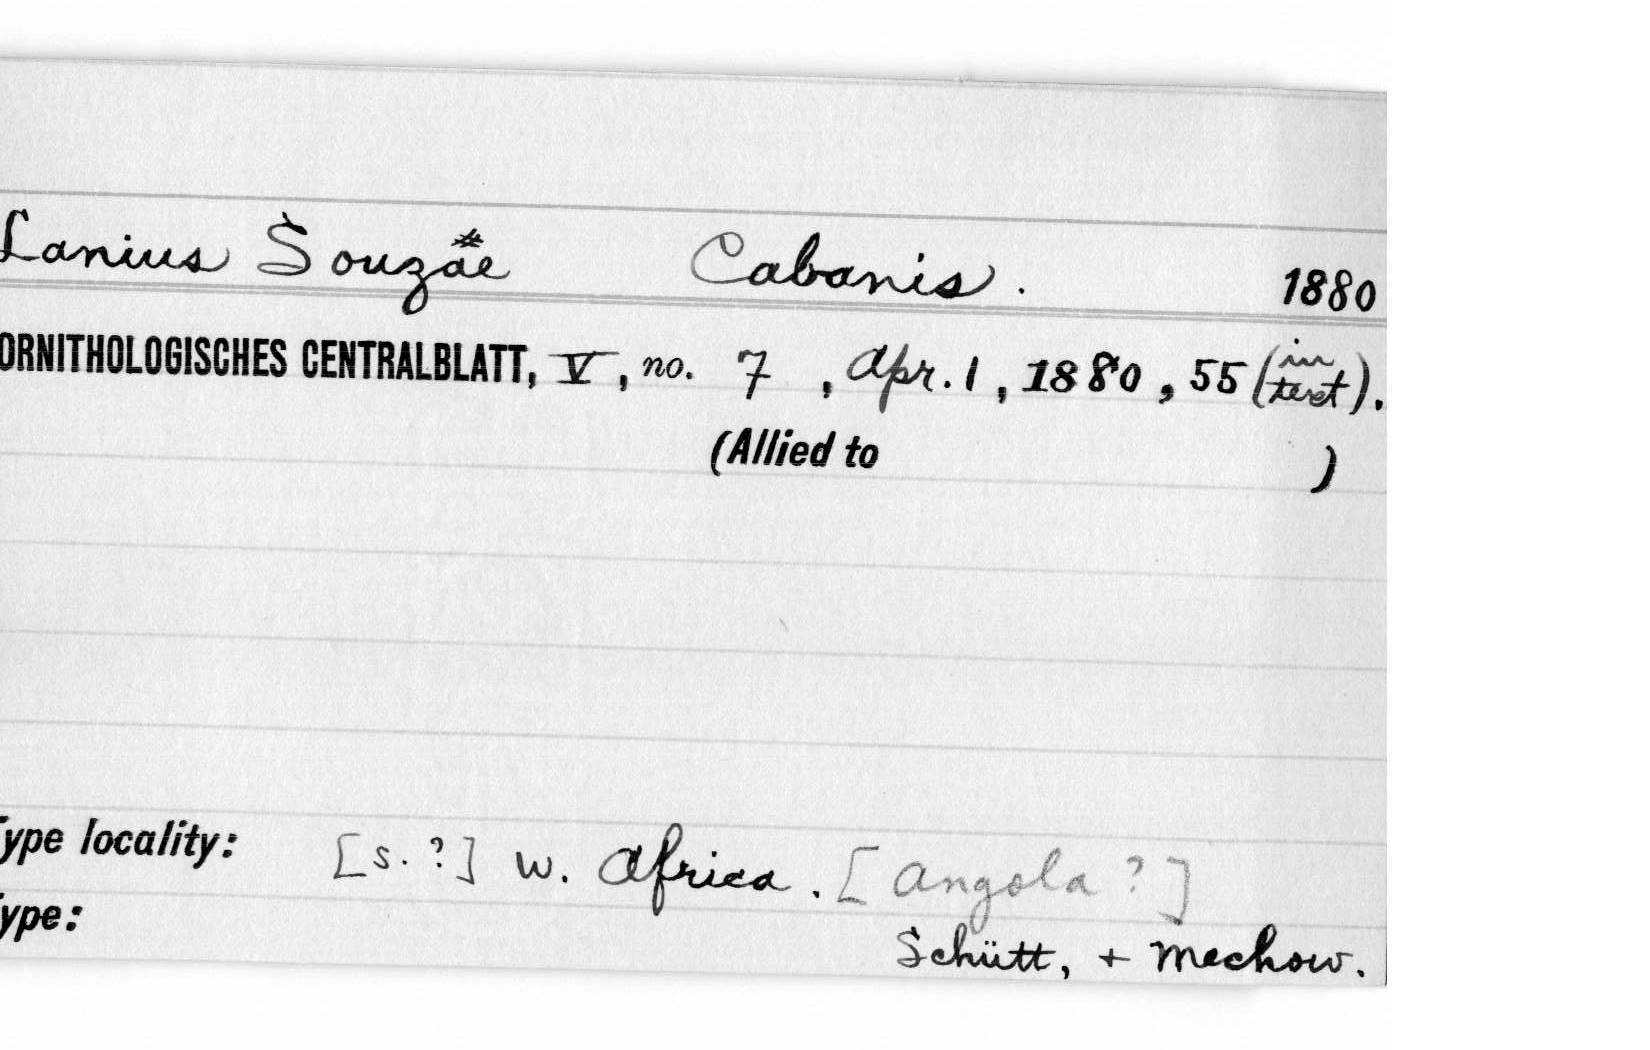 Lanius Souzae Cabanis. 1880
ORNITHOLOGISCHES CENTRALBLATT, V, no. 7, Apr. 1, 1880, 55 (in text).
(Allied to )
Type locality: [S. ?] W. Africa. [Angola ?]
Type:
Schütt, + Mechow.